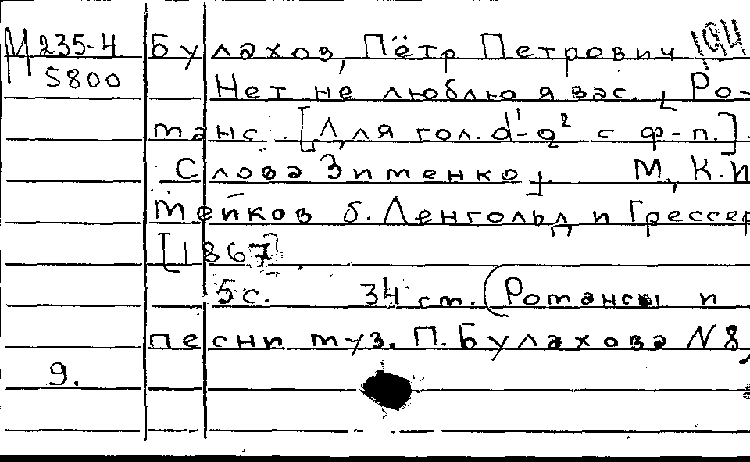 М 235-4 Булахов, Пётр Петрович 194
5800 Нет не люблю я вас. Ро-
манс. [Для гол. d¹-g² с ф-п.]
Слова Зименко. М, К. И
Мейков б. Ленгольд и Грессер
[1867]
5 с. 34 см. (Романсы и
песни муз. П. Булахова N 8,
9.